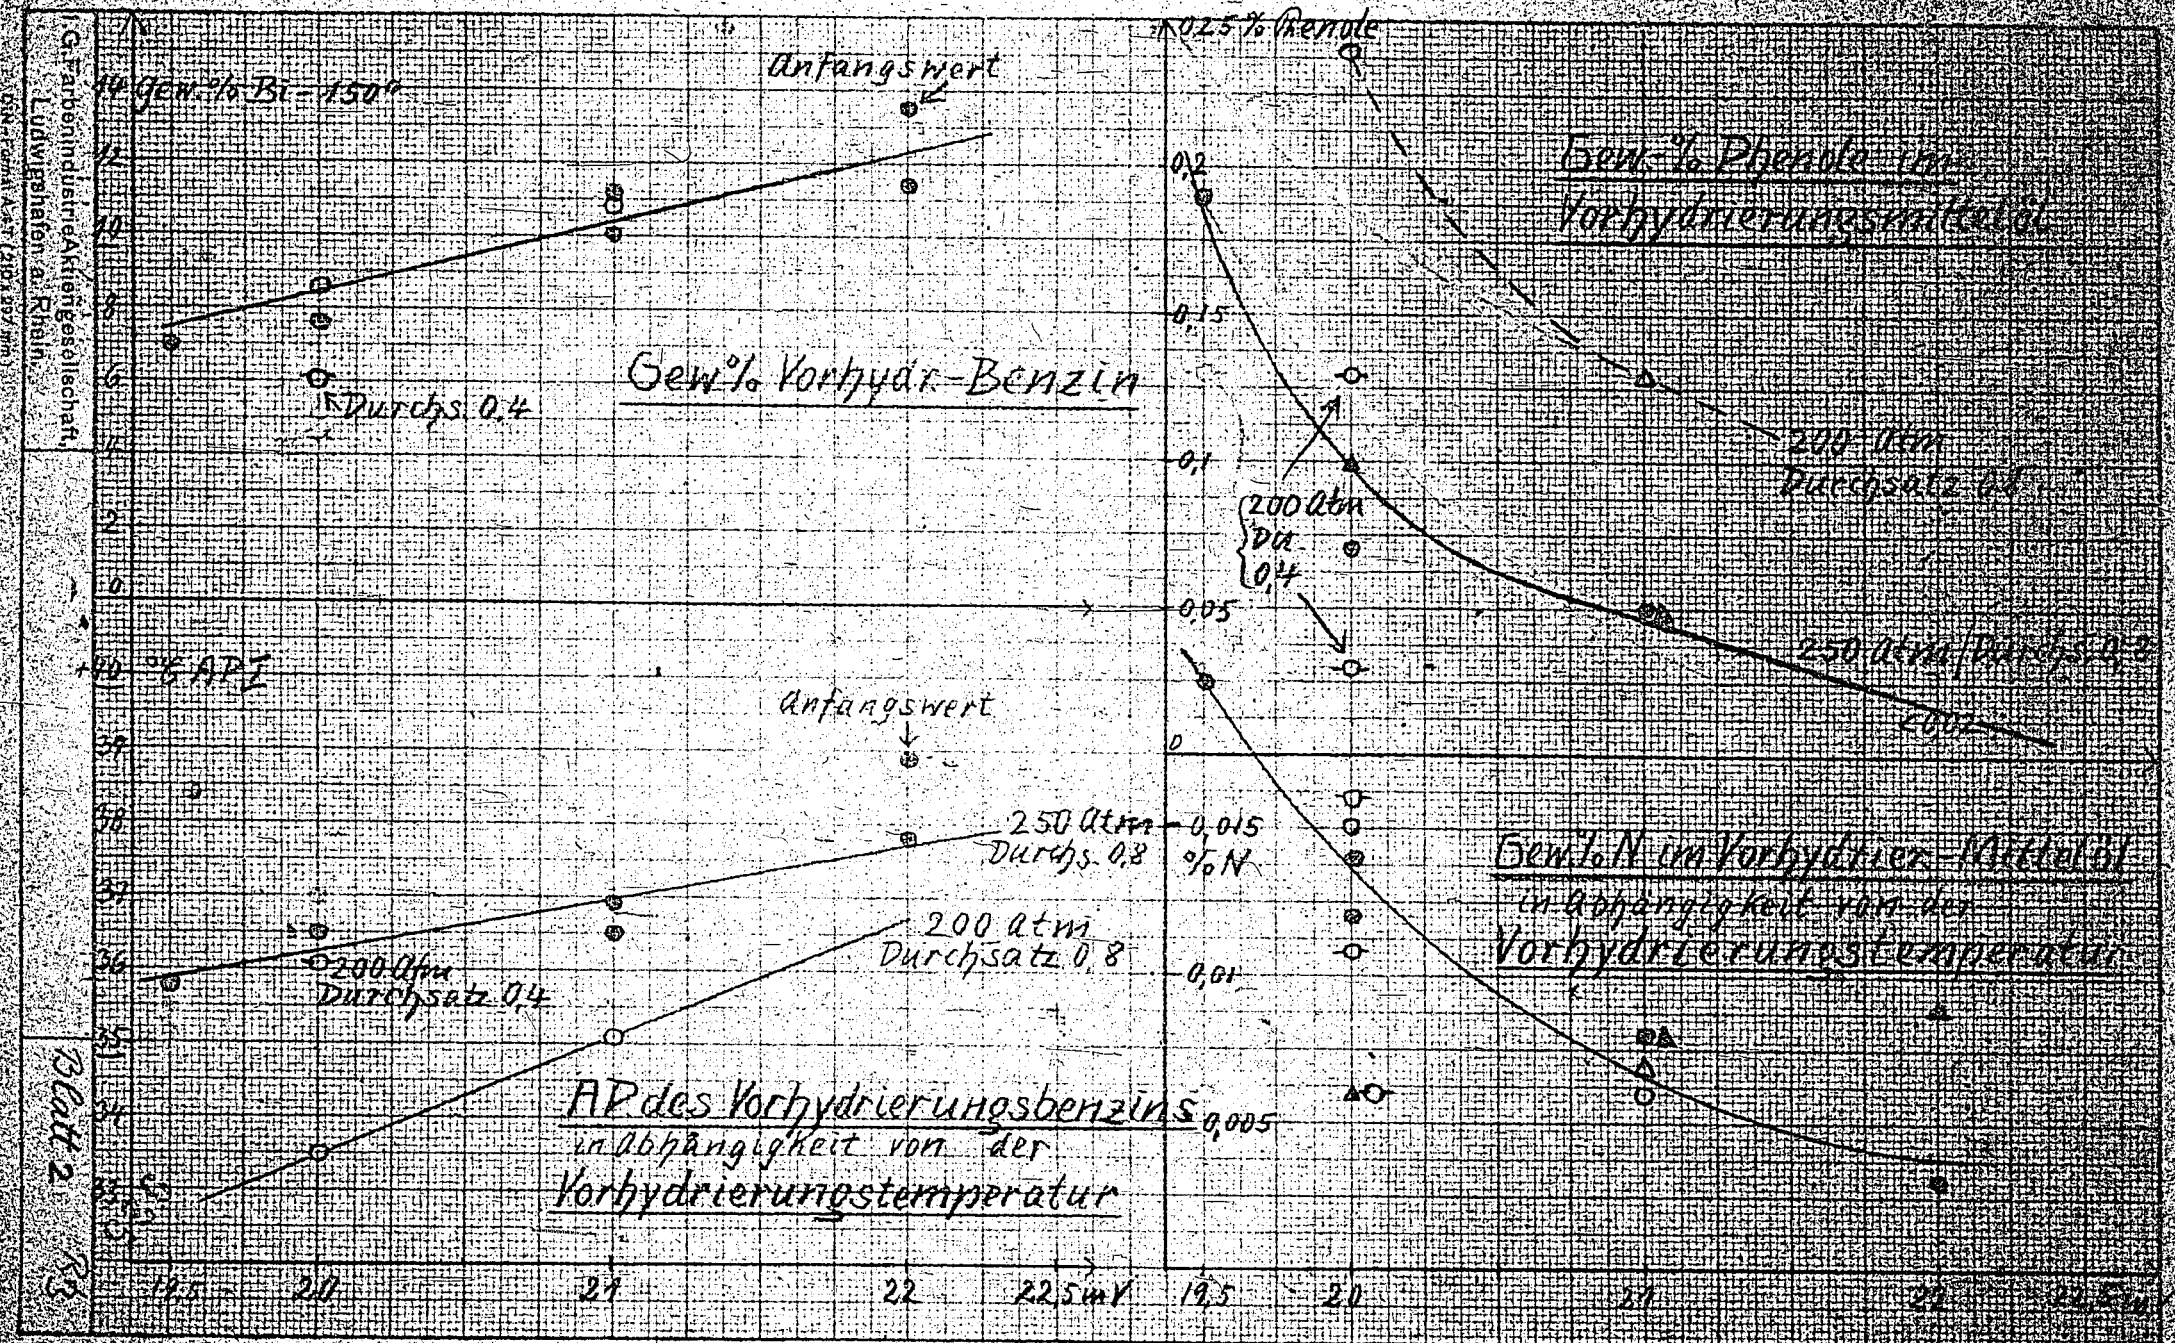 I.G. Farbenindustrie Aktiengesellschaft,
Ludwigshafen a. Rhein.
Blatt 2
14 Gew.% Bi -150°
12
10
8
6
4
2
0
Anfangswert
Durchs. 0,4
Gew% Vorhydr.-Benzin
+40 °C AP I
39
38
37
36
35
34
33
Anfangswert
250 Atm
Durchs. 0,8
200 Atm
Durchsatz 0,8
200 Atm
Durchsatz 0,4
AP des Vorhydrierungsbenzins
in Abhängigkeit von der
Vorhydrierungstemperatur
19,5 20 21 22 22,5 mV
0,25 % Phenole
0,2
0,15
0,1
0,05
0
Gew.-% Phenole im
Vorhydrierungsmittelöl
200 Atm
Durchsatz
200 Atm
Du
0,4
250 Atm/Durchs. 0,8
<0,02
0,015
% N
0,01
0,005
Gew.% N im Vorhydrier.-Mittelöl
in Abhängigkeit von der
Vorhydrierungstemperatur
19,5 20 21 22 22,5